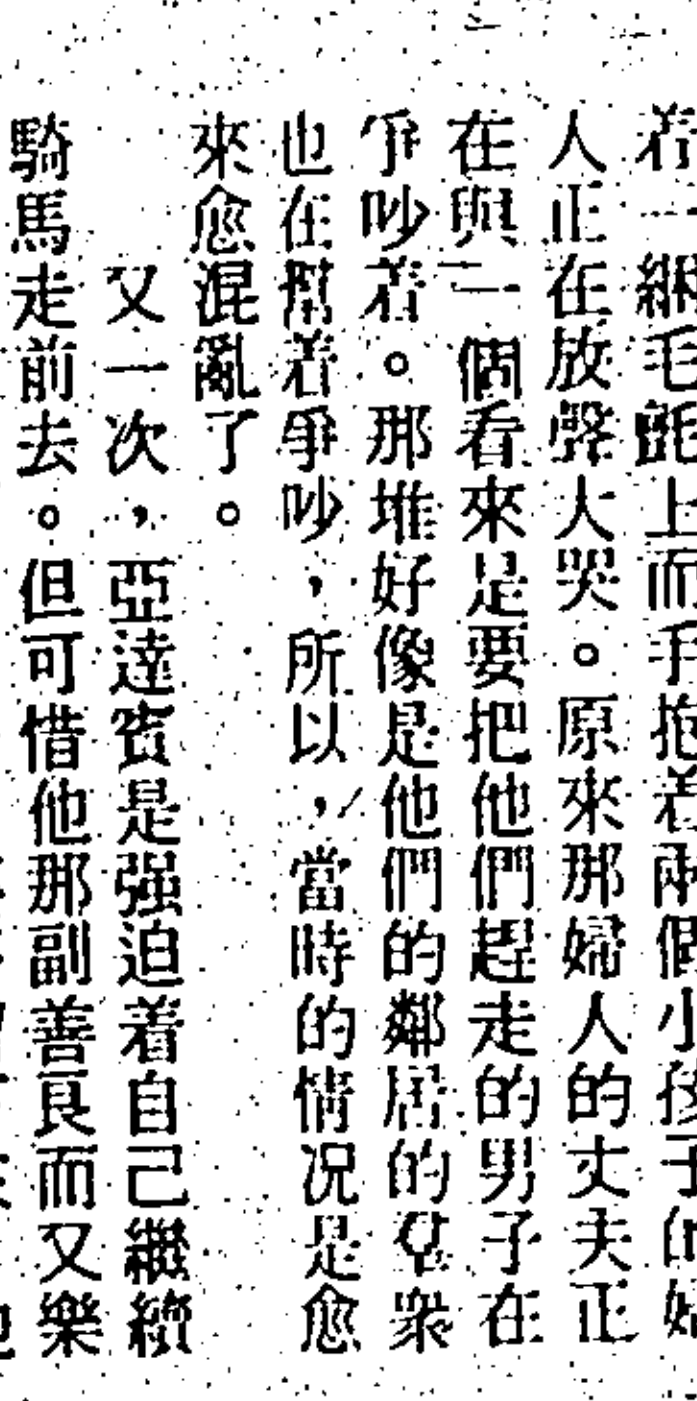 着一綑毛氈上而手抱着兩個小孩子的婦
人正在放聲大哭。原來那婦人的丈夫正
在與一個看來是要把他們趕走的男子在
爭吵着。那堆好像是他們的鄰居的羣衆
也在幫着爭吵，所以，當時的情况是愈
來愈混亂了。
又一次，亞達賓是强迫着自己繼續
騎馬走前去。但可惜他那副善良而又樂